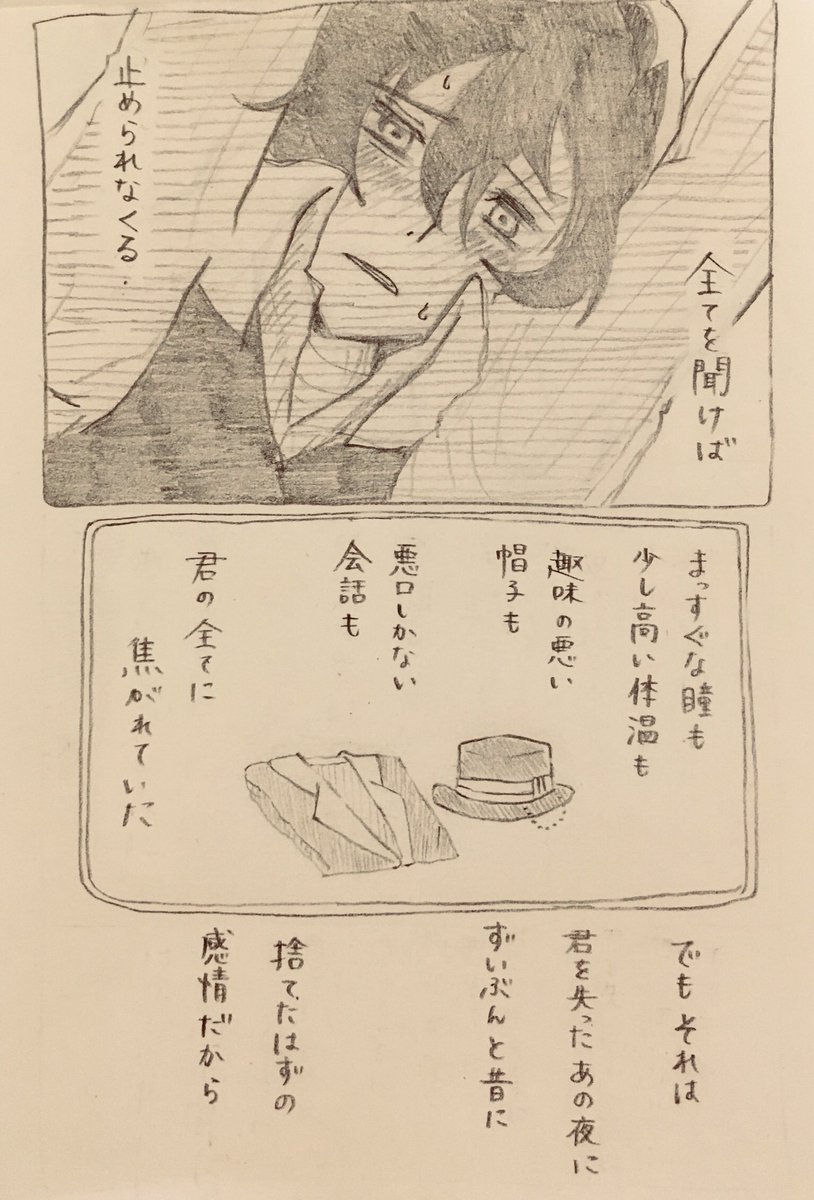 全てを聞けば
止められなくる
まっすぐな瞳も
少し高い体温も
趣味の悪い
帽子も
悪口しかない
会話も
君の全てに
焦がれていた
でもそれは
君を失ったあの夜に
ずいぶんと昔に
捨てたはずの
感情だから